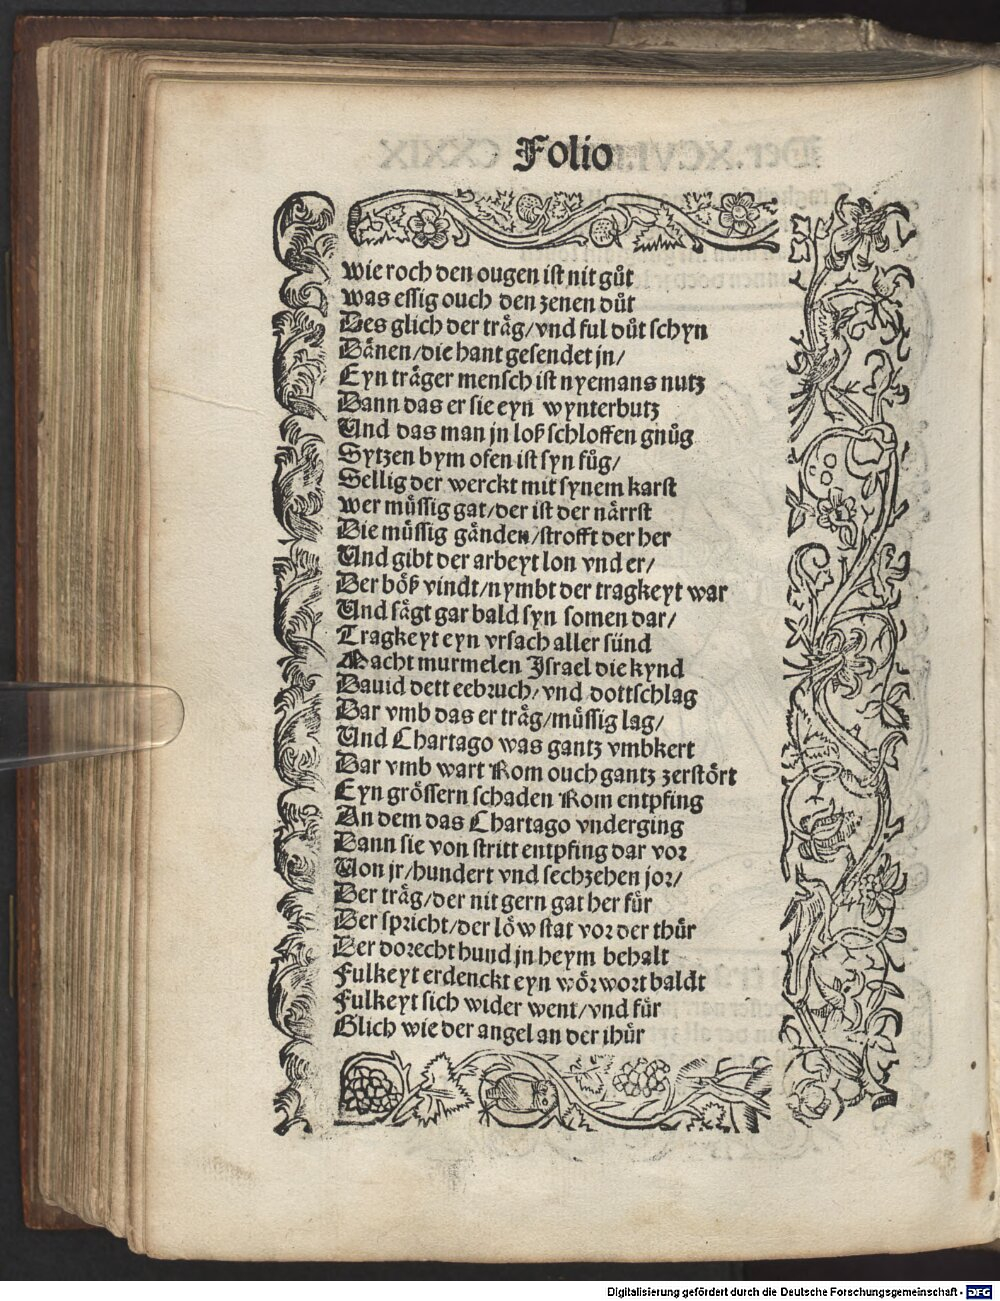 Folio
Wie roch den ougen ist nit gůt
was essig ouch den zenen důt
Des glich der träg/vnd ful důt schyn
Dänen/die hant gesendet jn/
Eyn träger mensch ist nyemans nutz
Dann das er sie eyn wynterbutz
Und das man jn loß schloffen gnůg
Sytzen bym ofen ist syn fůg/
Sellig der werckt mit synem karst
wer müssig gat/der ist der närrst
Die müssig gänden/strofft der her
Und gibt der arbeyt lon vnd er/
Der böß vindt/nymbt der tragkeyt war
Und sägt gar bald syn somen dar/
Tragkeyt eyn vrsach aller sünd
Macht murmelen Israel die kynd
Dauid dett eebruch/vnd dottschlag
Dar vmb das er träg/müssig lag/
Und Chartago was gantz vmbkert
Dar vmb wart Rom ouch gantz zerstört
Eyn grössern schaden Rom entpfing
An dem das Chartago vnderging
Dann sie von stritt entpfing dar vor
Von jr/hundert vnd sechzehen jor/
Der träg/der nit gern gat her für
Der spricht/der löw stat vor der thür
Der dorecht hund jn heym behalt
Fulkeyt erdenckt eyn wörwort baldt
Fulkeyt sich wider went/vnd für
Glich wie der angel an der thür
Digitalisierung gefördert durch die Deutsche Forschungsgemeinschaft - DFG